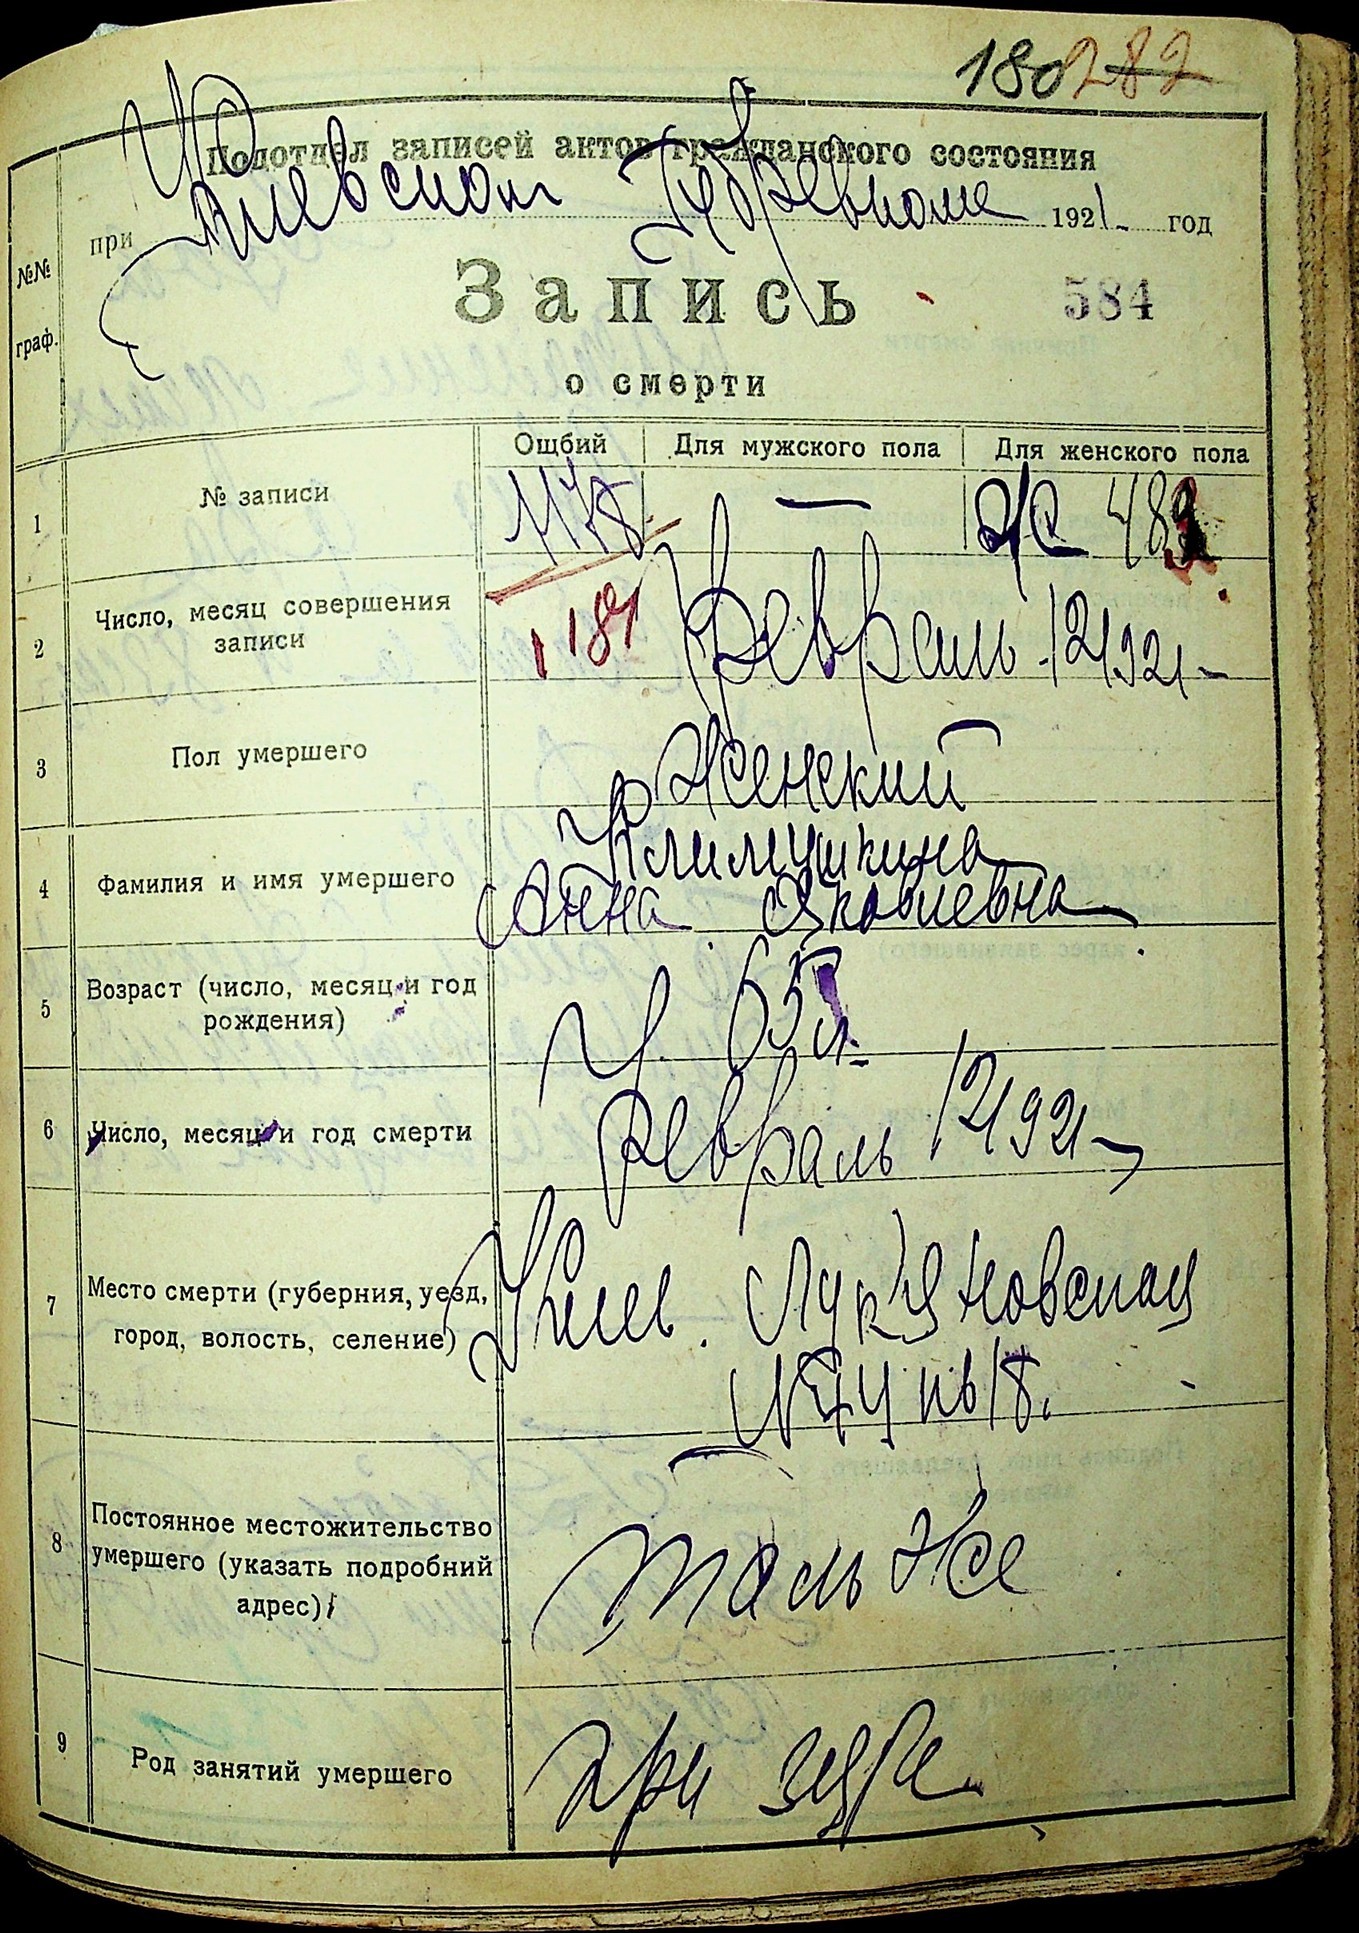 180 282
Подотдел записей актов гражданского состояния
при Киевском Губревкоме 1921 год
№№
граф.
Запись
584
о смерти
Ощбий Для мужского пола Для женского пола
1 № записи 1178. — 483
2 Число, месяц совершения
записи
1181 Февраль 12/1921
3 Пол умершего Женский
4 Фамилия и имя умершего Климушкина
Анна Яковлевна
5 Возраст (число, месяц и год
рождения)
65 л.
6 Число, месяц и год смерти февраль 12/1921
7 Место смерти (губерния, уезд, Киев. Лукяновская
город, волость, селение)
8 Постоянное местожительство
умершего (указать подробний
адрес)
там же
9 Род занятий умершего при